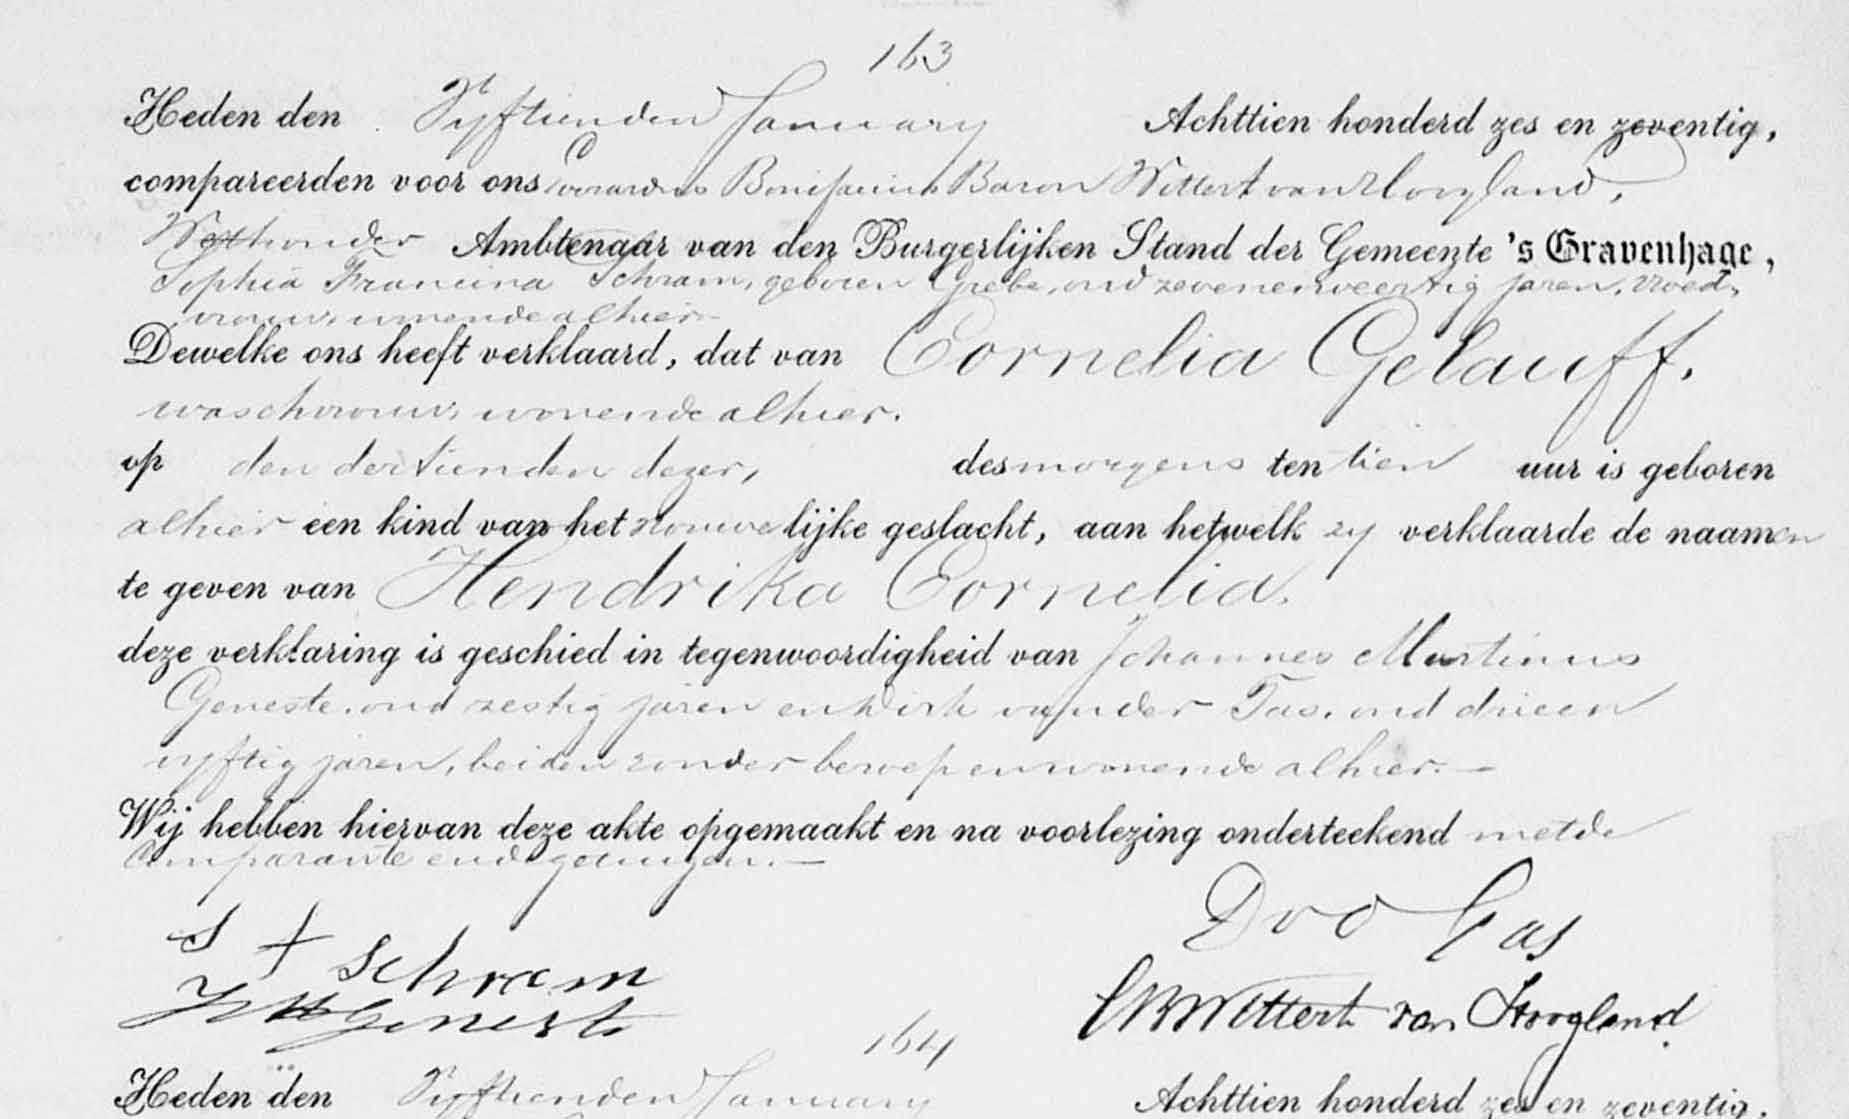 163
Heden den Vyftienden January Achttien honderd zes en zeventig,
compareerden voor ons Everardus Bonifacius Baron Wittert van Hoogland,
Wethouder Ambtenaar van den Burgerlijken Stand der Gemeente 's Gravenhage,
Sophia Francina Schram, geboren Grebe, oud zevenenveertig jaren, vroed-
vrouw, wonende alhier
Dewelke ons heeft verklaard, dat van Cornelia Gelauff,
waschvrouw, wonende alhier.
op den dertienden dezer, des morgens ten tien uur is geboren
alhier een kind van het vrouwelijke geslacht, aan hetwelk zy verklaarde de naamen
te geven van Hendrika Cornelia.
deze verklaring is geschied in tegenwoordigheid van Johannes Martinus
Geneste, oud zestig jaren en Dirk van der Tas, oud drieen
vyftig jaren, beiden zonder beroep en wonende alhier.
Wij hebben hiervan deze akte opgemaakt en na voorlezing onderteekend met de
Comparante en de getuigen.
S F Schram
D v d Tas
JM Geneste
EBWittert van Hoogland
164
Heden den Vyftienden January Achttien honderd zes en zeventig,